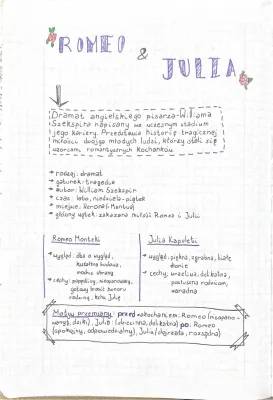 ROMEO
&
JULIA
Dramat angielskiego pisarza - Williama
Szekspira napisany we wczesnym stadium
jego kariery. Przedstawia historię tragicznej
miłości dwojga młodych ludzi, którzy stali się
wzorcem romantycznych kochanków
rodzaj: dramat
gatunek: tragedia
autor: William Szekspir
czas: lato, niedziela-piątek
miejsce: Verona i Mantua
główny wątek: zakazana miłość Romea i Julii
Romeo Monteki
wygląd: dba o wygląd,
budowa,
modne ubrania
cechy: porywczy,
gotowy bronić honoru
rodziny, kocha Julię
Julia Kapuleti
wygląd: piękna, zgrabna, białe
dłonie
cechy: wrażliwa, delikatna,
posłuszna rodzicom,
Motyw przemiany: przed zakochaniem: Romeo
Julia: (dziecinna, delikatna) po: Romeo
(spokojny, odpowiedzialny), Julia (dojrzała, rozsądna)